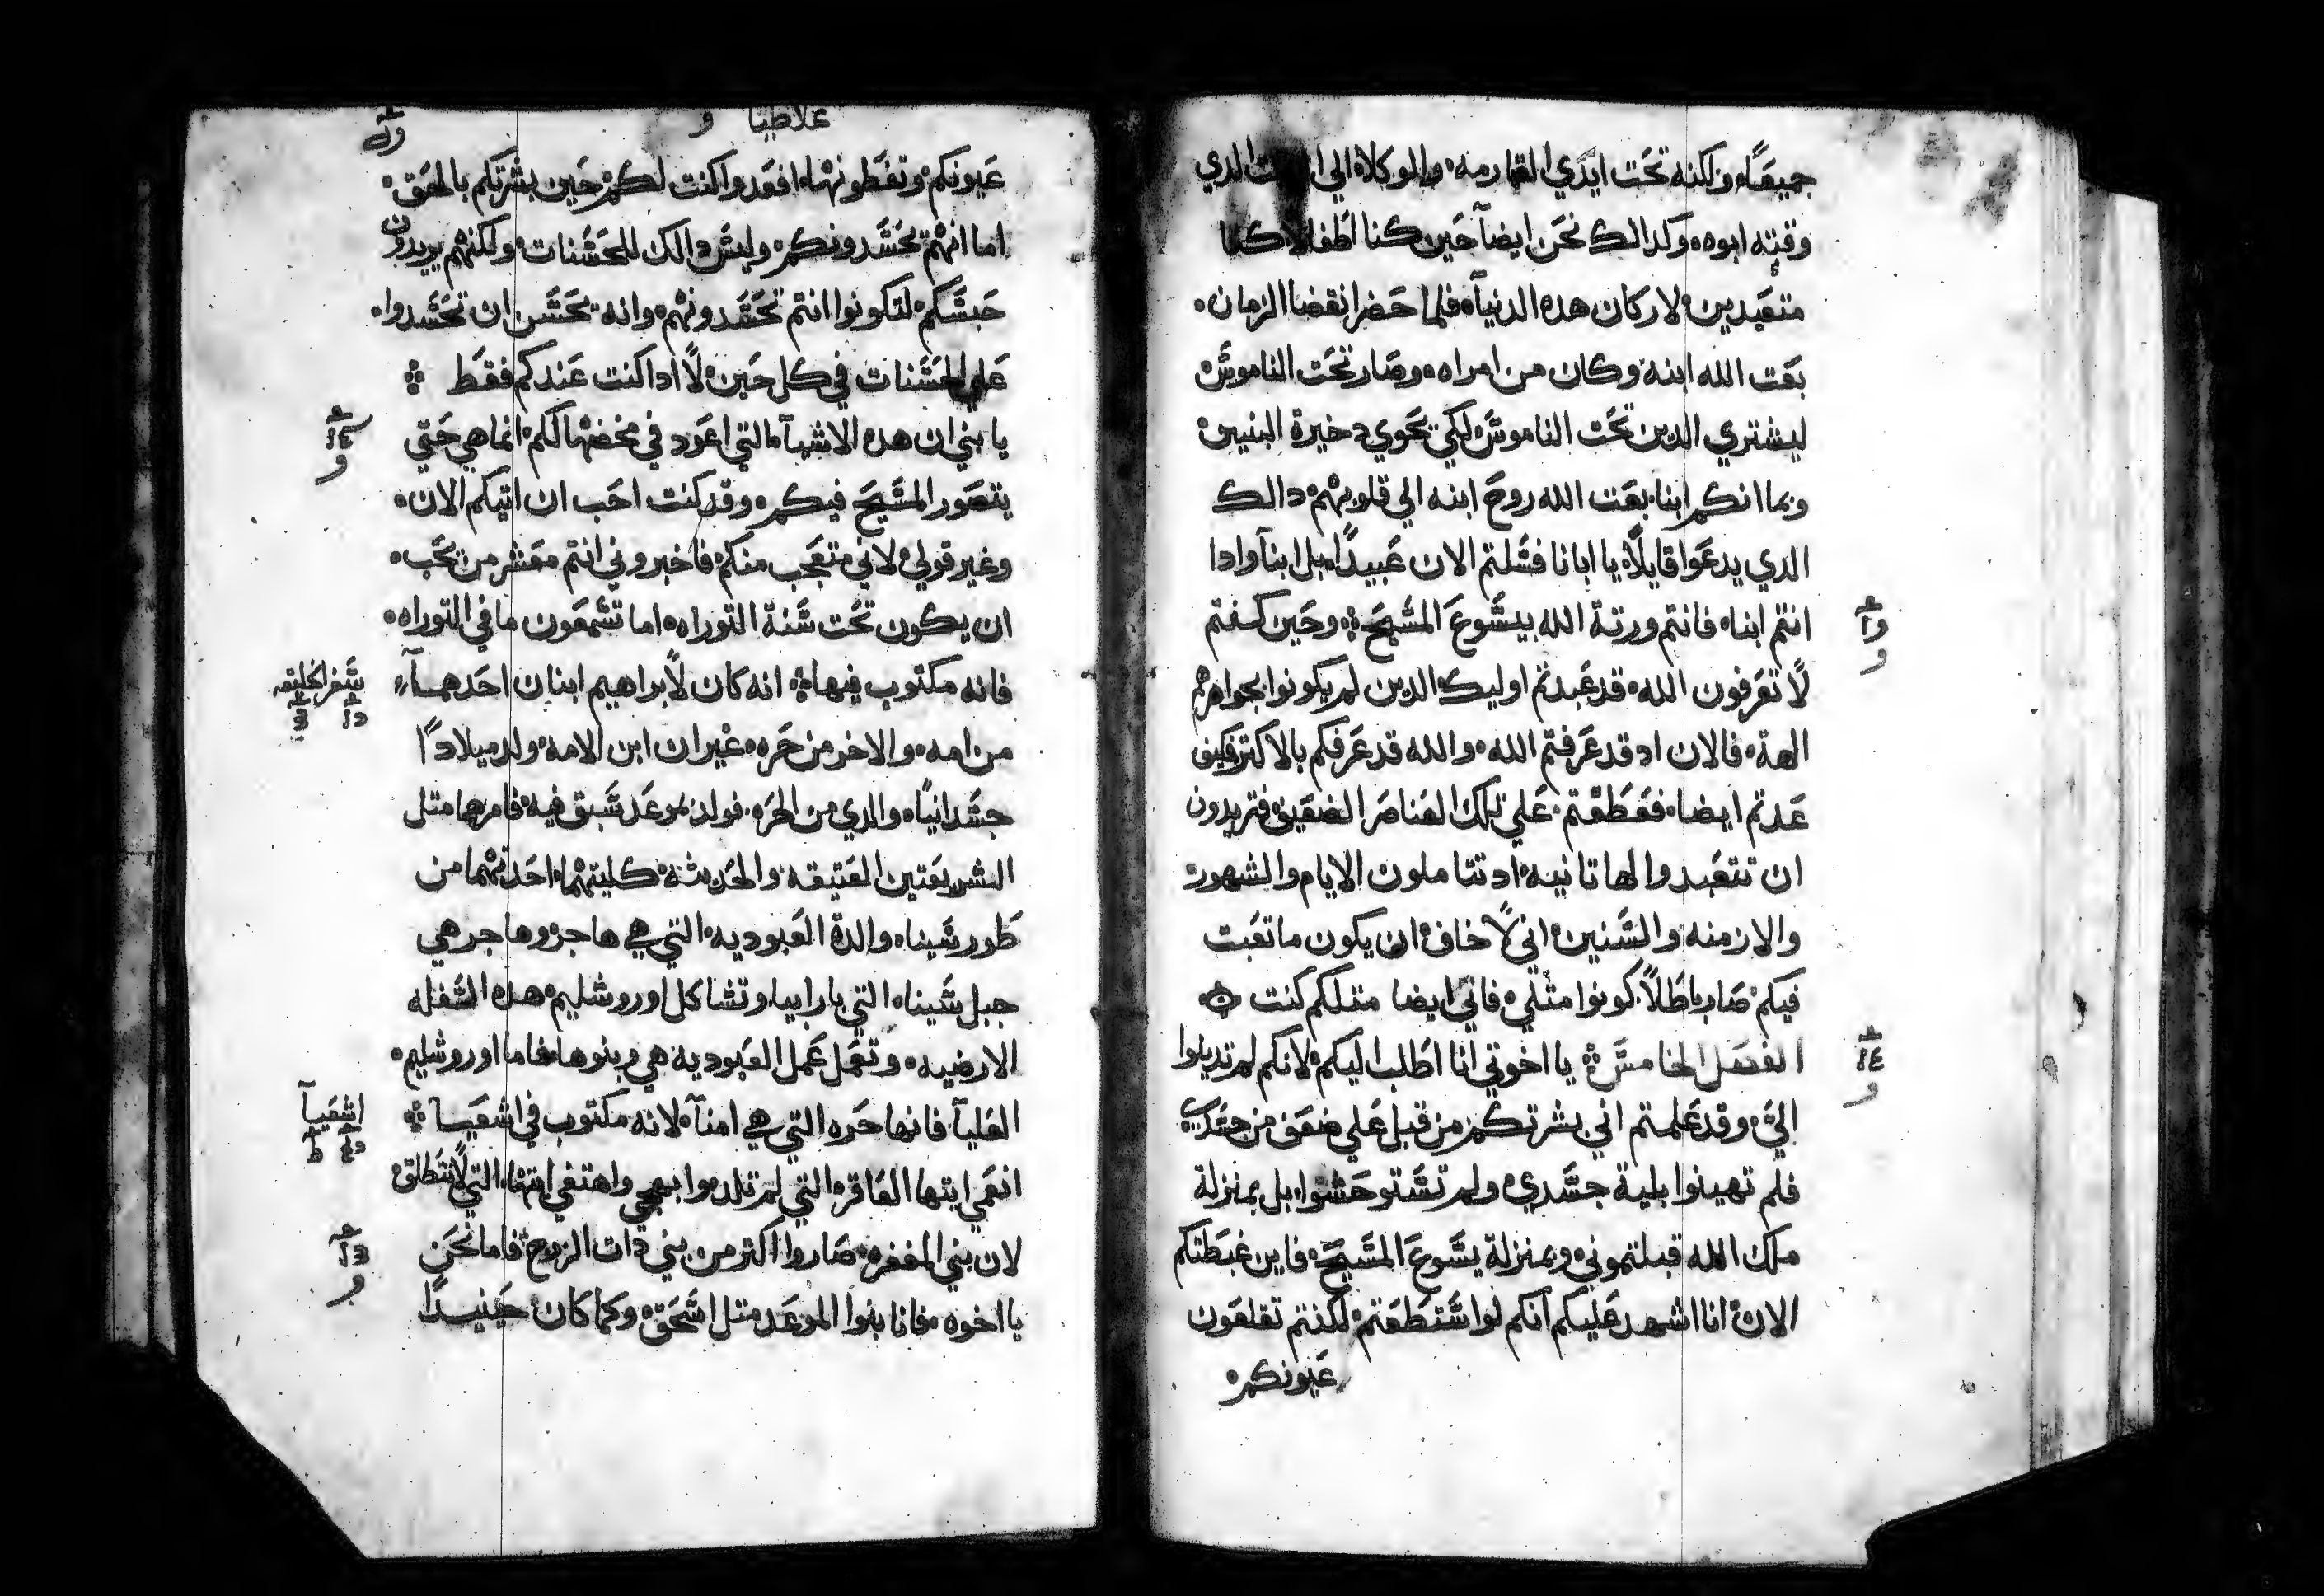 جميعًا، ولكنه تحت ايدي القهارمه، والوكلاة الي الدي
وقته ابوه، وكدالك نحن ايضاً حين كنا اطفالاً كنا
متعبدين لاركان هده الدنيا، فلما حضر انقضا الزمان،
بعت الله ابنه، وكان من امراه، وصار تحت الناموس
ليشتري الدين تحت الناموس لكي نحوي دخيرة البنين
وبما انكم ابنا، بعت الله روح ابنه الي قلوبهم، دالك
الدي يدعوا قايلًا، يا ابانا فشلتم الان عبيدًا، بل ابنا وادا
انتم ابناه، فانتم ورتة الله بيسوع المسيح ؞ وحين كنتم
لا تعرفون الله، قد عبدتم اوليك الدين لم يكونوا بجواهرهم
الهة، فالان اد قد عرفتم الله، والله قد عرفكم بالاكتر فكيف
عدتم ايضا، فعطفتم، علي تلك العناصر الضعيفه فتريدون
ان تتعبدوا لها تانيه، اد تتاملون الايام والشهور
والازمنه والسنين، اني لاخاف، ان يكون ما تعبت
فيكم، صار باطلاً، كونوا مثلي، فاني ايضا متلكم كنت
الفصل الخامس ؞ يا اخوتي انا اطلب اليكم، لانكم لم تديلوا
الي، وقد علمتم اني بشرتكم من قبل علي ضعف من جسدي
فلم تهينوا بلية جسدي، ولم تستوحشوا، بل بمنزلة
ملاك الله قبلتموني، وبمنزلة يسوع المسيح، فاين غبطتكم
الان، انا اشهد عليكم انكم لو استطعتم، لكنتم تقلعون
عيونكم،
غلاطيا و
عيونكم، وتعطونيها، افعدوا كنت لكم، حين بشرتكم بالحق،
اما انهم تحسدونكم، وليس دالك للحسنات، ولكنهم يريدون
حبسكم، لتكونوا انتم تحسدونهم، وانه يحسن ان تحسدوا،
علي الحسنات في كل حين، لا ادا كنت عندكم فقط ؞
يا بني ان هده الاشيا، التي اعود في مخضها لكم، انما هي حتي
يتصور المسيح فيكم، وقد كنت احب ان اتيكم الان،
وغير قولي، لاني متعجب منكم، فاخبروني انتم معشر من يحب،
ان يكون تحت سنة التوراه، اما تسمعون ما في التوراه،
فانه مكتوب فيها ؞ انه كان لابراهيم ابنان احدهما
سفر الخليقه
من امه، والاخر من حره، غير ان ابن الامه، ولد ميلادًا
جسدانيًا، والدي من الحره، فولد بموعد سبق فيه، فامرهما متل
الشريعتين العتيقه، والحديثة، كليتهما، احدتهما من
طور سيناه، والدة العبوديه، التي هي هاجر، وهاجر هي
جبل سيناه، التي بارابيا، وتشاكل اوروشليم، هده السفله
الارضيه، وتعمل عمل العبوديه هي وبنوها، فاما اوروشليم،
العليا، فانها حره، التي هي امنا، لانه مكتوب في اشعيا ؞
اشعيا
انعمي ايتها العاقره، التي لم تلد، وابهجي واهتفي ايتها، التي لا تطلق،
لان بني المقفره، صاروا اكتر من بني دات الزوج، فاما نحن
يا اخوه، فانا بنوا الموعد متل اسحق، وكما كان حينيدًا